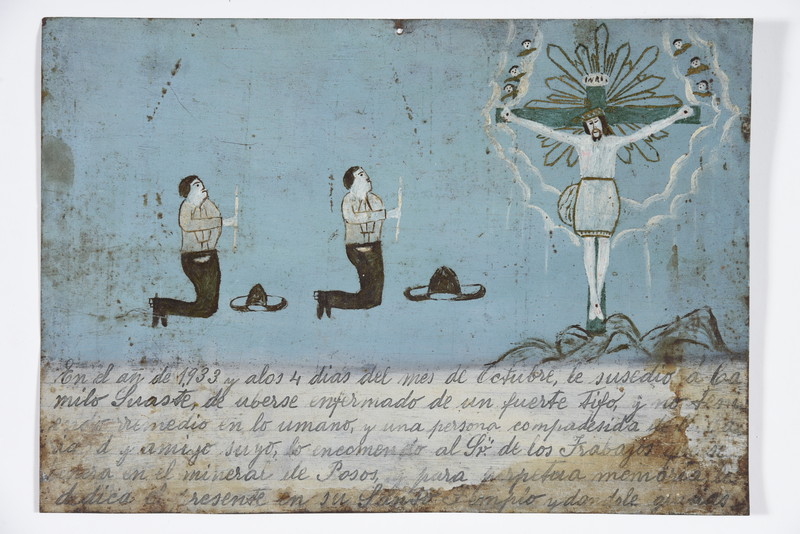 INRI
En el añ de 1933 y alos 4 dias del mes de Octubre, le susedio a Ca
milo Suaste, de uberse enfermado de un fuerte Tifo, y no
remedio en lo umano, y una persona compadesida
y amigo suyo, lo enecmendo al Sr. de los Trabajos
en el mineral de Posos, y para perpetua memoria
dedica en su Santo Templo y dandole gracias